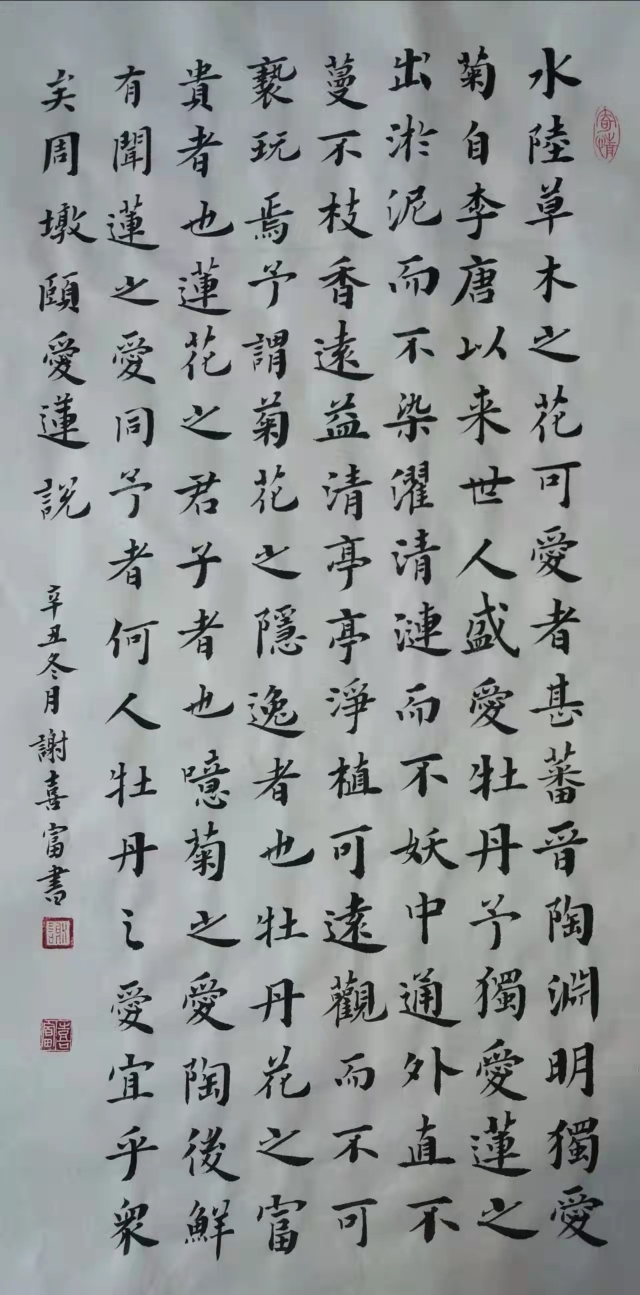 水陸草木之花可愛者甚蕃晋陶淵明獨愛
菊自李唐以来世人盛愛牡丹予獨愛蓮之
出淤泥而不染濯清漣而不妖中通外直不
蔓不枝香遠益清亭亭淨植可遠觀而不可
褻玩焉予謂菊花之隱逸者也牡丹花之富
貴者也蓮花之君子者也噫菊之愛陶後鮮
有聞蓮之愛同予者何人牡丹之愛宜乎衆
矣周墩頤愛蓮説
辛丑冬月謝喜富書